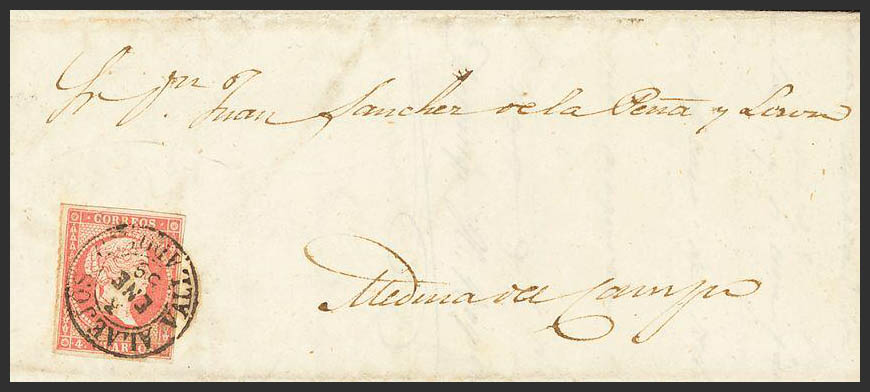 Sr Dn Juan Sanchez de la Peña y
Medina del Campo
CORREOS
ALAEJOS
ENE
4 CUARTOS